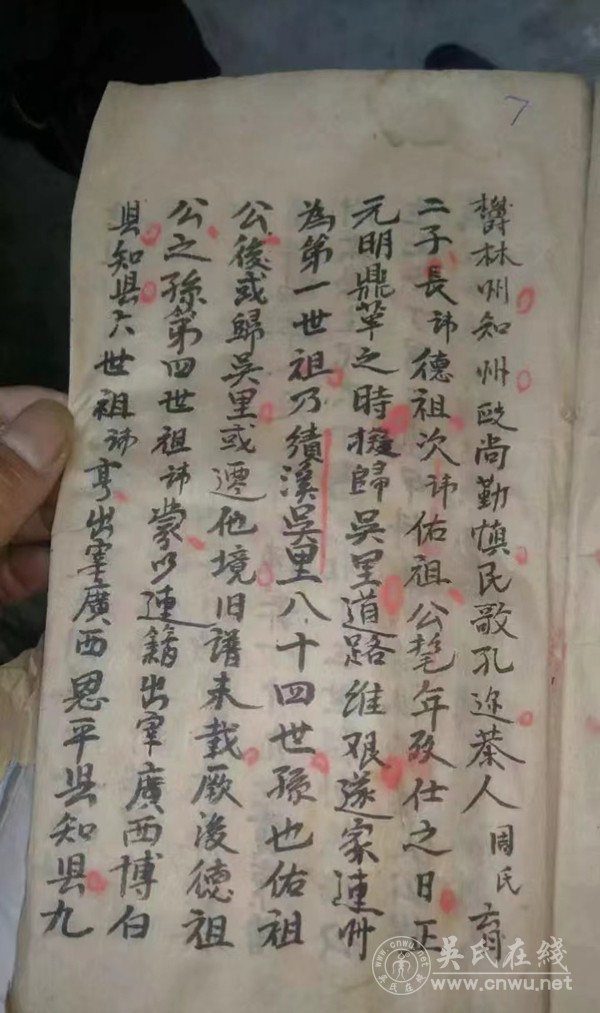 7
欝林州知州政尚勤慎民歌孔迩蔡人周氏育
二子長諱德祖次諱佑祖公髦年致仕之日正
元明鼎革之時擬歸吳里道路维艰遂家連州
為第一世祖乃績溪吳里八十四世孫也佑祖
公後或歸吳里或遷他境旧譜未载厥後德祖
公之孫第四世祖諱蒙以連籍出宰廣西博白
县知县六世祖諱亨出宰廣西恩平县知县九
吳氏在綫
www.cnwu.net